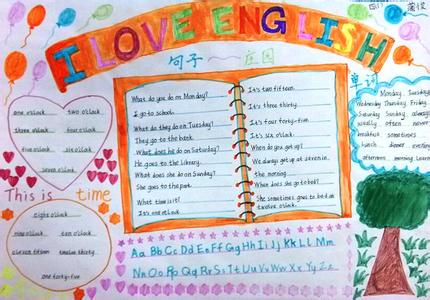 I LOVE ENGLISH
句子
庄园
单词
one o'clock two o'clock
three o'clock four o'clock
five o'clock six o'clock
seven o'clock
This is time
eight o'clock
nine o'clock ten o'clock
eleven fifteen twelve thirty
one forty-five
What do you do on Monday?
I go to school.
What do they do on Tuesday?
They go to the bank.
What does he do on Saturday?
He goes to the library.
What does she do on Sunday?
She goes to the park.
What time is it?
It's one o'clock
It's two fifteen.
It's three thirty.
It's four forty-five.
It's six o'clock.
When do you get up?
We always get up at seven in
the morning.
When does she go to bed?
She sometimes goes to bed at
twelve o'clock.
Monday Tuesday
Wednesday Thursday Friday
Saturday Sunday always
usually often never
breakfast sometimes
lunch dinner evening
afternoon morning
Aa Bb Cc Dd Ee Ff Gg Hh Ii Jj Kk LL Mm
Nn Oo Pp Qq Rr Ss Tt Uu Vv Ww Xx Yy Zz